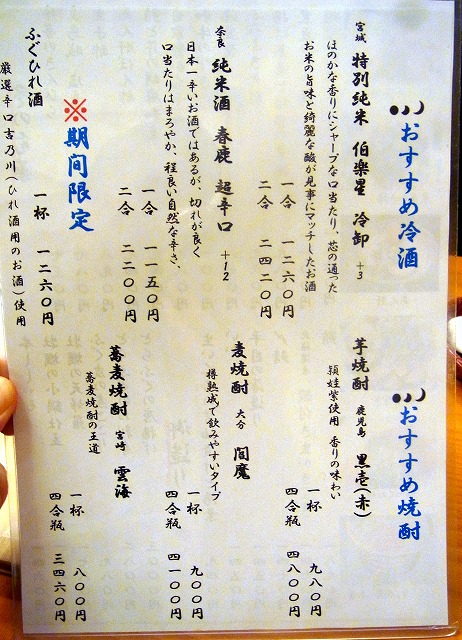 おすすめ冷酒
宮城 特別純米 伯楽星 冷卸 +3
ほのかな香りにシャープな口当たり、芯の通った
お米の旨味と綺麗な酸が見事にマッチしたお酒
一合 一二六〇円
二合 二四二〇円
奈良 純米酒 春鹿 超辛口 +12
日本一辛いお酒ではあるが、切れが良く
口当たりはまろやか、程良い自然な辛さ、
一合 一一五〇円
二合 二二〇〇円
※期間限定
ふぐひれ酒
一杯 一二六〇円
厳選辛口吉乃川(ひれ酒用のお酒)使用
おすすめ焼酎
芋焼酎 鹿児島 黒壱(赤)
頴娃紫使用 香りの味わい
一杯 九八〇円
四合瓶 四八〇〇円
麦焼酎 大分 閻魔
樽熟成で飲みやすいタイプ
一杯 九〇〇円
四合瓶 四一〇〇円
蕎麦焼酎 宮崎 雲海
蕎麦焼酎の王道
一杯 八〇〇円
四合瓶 三四六〇円